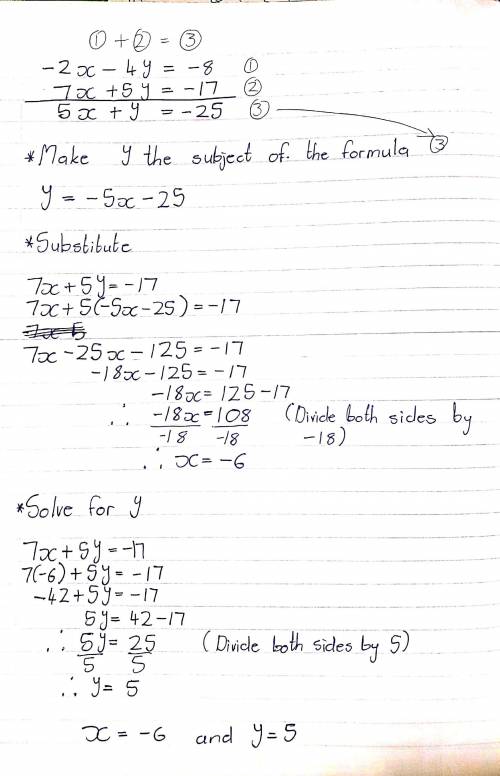 ① + ② = ③
-2x - 4y = -8 ①
7x + 5y = -17 ②
5x + y = -25 ③
*Make y the subject of. the formula ③
y = -5x - 25
*Substitute
7x + 5y = -17
7x + 5(-5x - 25) = -17
7x - 25x - 125 = -17
-18x - 125 = -17
-18x = 125 - 17
∴ -18x = 108 (Divide both sides by
-18 -18 -18)
∴ x = -6
*Solve for y
7x + 5y = -17
7(-6) + 5y = -17
-42 + 5y = -17
5y = 42 - 17
∴ 5y = 25 (Divide both sides by 5)
5 5
∴ y = 5
x = -6 and y = 5